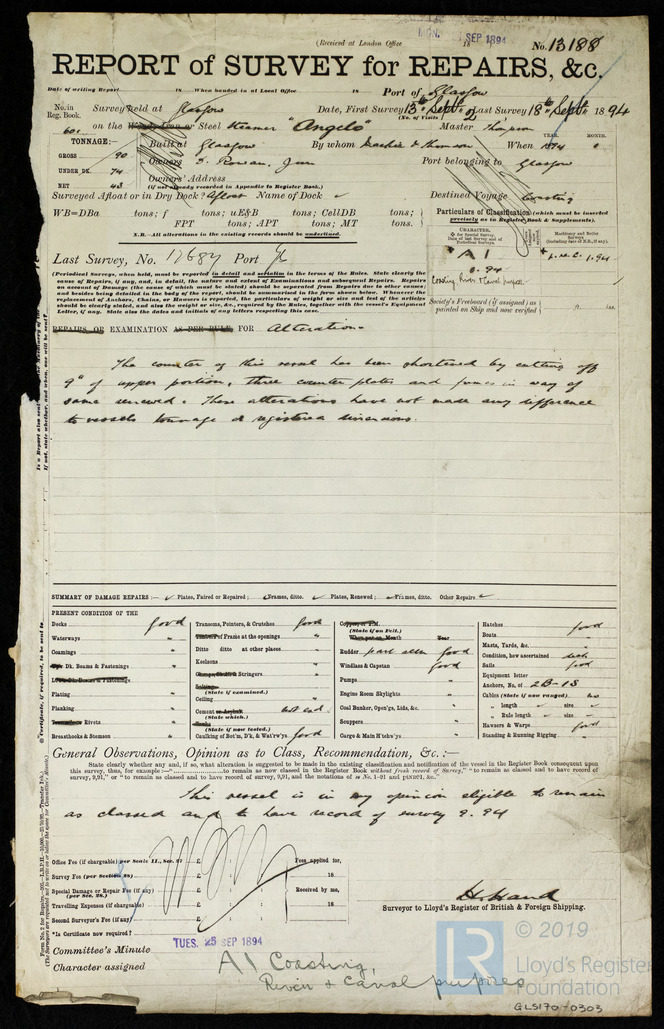 (Received at London Office 18
MON. SEP 1894
No. 13188
REPORT of SURVEY for REPAIRS, &c.
Date of writing Report 18 When handed in at Local Office 18 Port of Glasgow
No. in Reg. Book. Survey held at Glasgow Date, First Survey 13th Sept Last Survey 18th Sept 1894
(No. of Visits 2
601 on the Wood, Iron or Steel Steamer "Angelo" Master Thomson
TONNAGE:— Built at Glasgow By whom Mackie & Thomson When 1894
YEAR. MONTH.
GROSS 90 Owners D. Rowan, Jun Port belonging to Glasgow
UNDER DK. 74 Owners' Address
(if not already recorded in Appendix to Register Book.)
NET 43
Surveyed Afloat or in Dry Dock? Afloat Name of Dock Destined Voyage Coasting
WB=DBa tons; f tons; uE&B tons; CellDB tons;
FPT tons; APT tons; MT tons.
N.B.—All alterations in the existing records should be underlined.
Particulars of Classification (which must be inserted precisely as in Register Book & Supplements).
CHARACTER,
for Special Survey.
Date of last Survey and of Periodical Surveys.
Machinery and Boiler Surveys (including date of N.B., if any).
+ A1
6.94
+ L.M.C. 1.94
Coasting River & Canal purposes
Last Survey, No. 12684 Port Gls
(Periodical Surveys, when held, must be reported in detail and seriatim in the terms of the Rules. State clearly the
cause of Repairs, if any, and, in detail, the nature and extent of Examinations and subsequent Repairs. Repairs
on account of Damage (the cause of which must be stated) should be separated from Repairs due to other causes;
and besides being detailed in the body of the report, should be summarised in the form shown below. Whenever the
replacement of Anchors, Chains, or Hawsers is reported, the particulars of weight or size and test of the articles
should be clearly stated, and also the weight or size, &c., required by the Rules, together with the vessel's Equipment
Letter, if any. State also the dates and initials of any letters respecting this case.
Society's Freeboard (if assigned) as painted on Ship and now verified ft. ins.
REPAIRS OR EXAMINATION AS PER RULE FOR Alterations
The counter of this vessel has been shortened by cutting off
9" of upper portion, three counter plates and frames in way of
same renewed. These alterations have not made any difference
to vessels tonnage or registered dimensions.
SUMMARY OF DAMAGE REPAIRS:— Plates, Faired or Repaired; Frames, ditto. Plates, Renewed; Frames, ditto. Other Repairs
PRESENT CONDITION OF THE
Decks good
Waterways "
Coamings "
Up. Dk. Beams & Fastenings "
Lower Dk. Beams & Fastenings
Plating "
Planking "
Treenails or Rivets "
Breasthooks & Stemson "
Transoms, Pointers, & Crutches good
Timbers of Frame at the openings "
Ditto ditto at other places "
Keelsons "
Clamps, Shelves & Stringers "
Salting
(State if examined.)
Ceiling "
Cement or Asphalt
(State which.)
(State if now tested.)
Caulking of Bot'm, D'k, & Wat'rw'ys good
Copper, or Y.M.
(State if on Felt.)
When put on, Month Year
Rudder part seen good
Windlass & Capstan good
Pumps "
Engine Room Skylights "
Coal Bunker, Open'gs, Lids, &c. "
Scuppers "
Cargo & Main H'tchw'ys "
Hatches good
Boats "
Masts, Yards, &c. "
Condition, how ascertained deck
Sails good
Equipment letter
Anchors, No. of 2B-1S
Cables (State if now ranged) no
" length size
" Rule length size
Hawsers & Warps good
Standing & Running Rigging "
General Observations, Opinion as to Class, Recommendation, &c.:—
State clearly whether any, and if so, what alteration is suggested to be made in the existing classification and notification of the vessel in the Register Book consequent upon
this survey, thus, for example:—"..................to remain as now classed in the Register Book without fresh record of Survey," "to remain as classed and to have record of
survey, 9,91," or "to remain as classed and to have record of survey, 9,91, and the notations of s.s No. 1-91 and ptND91, &c."
This vessel is in my opinion eligible to remain
as classed and to have record of survey 9.94
Office Fee (if chargeable) per Scale II., Sec. 27 £ : : Fees applied for,
Survey Fee (per Section 28) £ : : 18
Special Damage or Repair Fee (if any) (per Sec. 28.) £ : : Received by me,
Travelling Expenses (if chargeable) £ : : 18
Second Surveyor's Fee (if any) £ : :
*Is Certificate now required?
H. Hand
Surveyor to Lloyd's Register of British & Foreign Shipping.
Committee's Minute TUES. 25 SEP 1894
Character assigned A1 Coasting,
River & Canal purposes
© 2019
LR
Lloyd's Register
Foundation
GLS170-0303